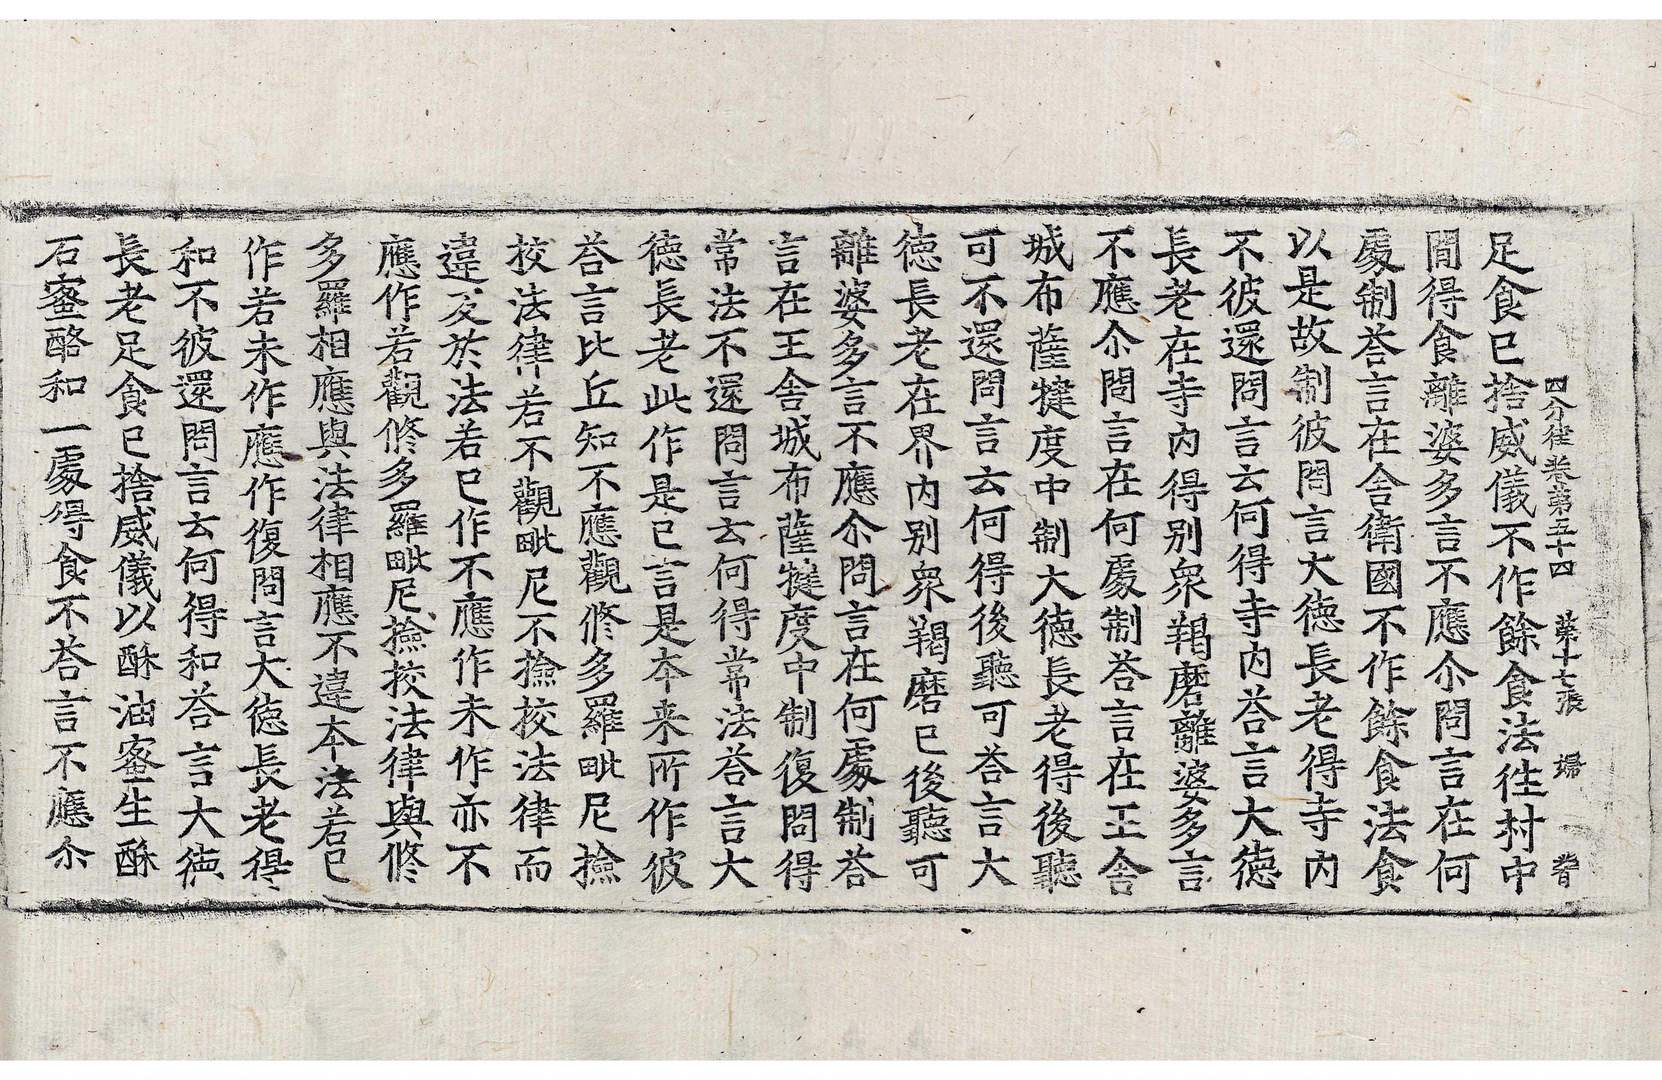 四分律卷第五十四 第十七張 婦
足食已捨威儀不作餘食法徃村中
間得食離婆多言不應尒問言在何
處制荅言在舍衛國不作餘食法食
以是故制彼問言大德長老得寺內
不彼還問言云何得寺內荅言大德
長老在寺內得別衆羯磨離婆多言
不應尒問言在何處制荅言在王舍
城布薩揵度中制大德長老得後聽
可不還問言云何得後聽可荅言大
德長老在界內別衆羯磨已後聽可
離婆多言不應尒問言在何處制荅
言在王舍城布薩揵度中制復問得
常法不還問言云何得常法荅言大
德長老此作是已言是本来所作彼
荅言比丘知不應觀修多羅毗尼撿
校法律若不觀毗尼不撿校法律而
違反於法若已作不應作未作亦不
應作若觀修多羅毗尼撿挍法律與修
多羅相應與法律相應不違本法若已
作若未作應作復問言大德長老得
和不彼還問言云何得和荅言大德
長老足食已捨威儀以酥油蜜生酥
石蜜酪和一處得食不荅言不應尒